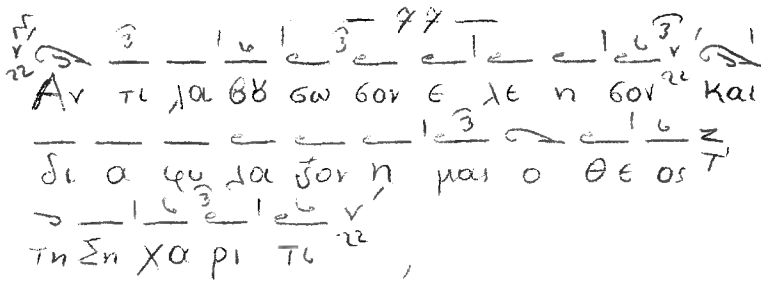 — 77 —
Αν τι λα βȣ σω σον ε λε η σον και
δι α φυ λα ξον η μας ο θε ος
τη Ση χα ρι τι